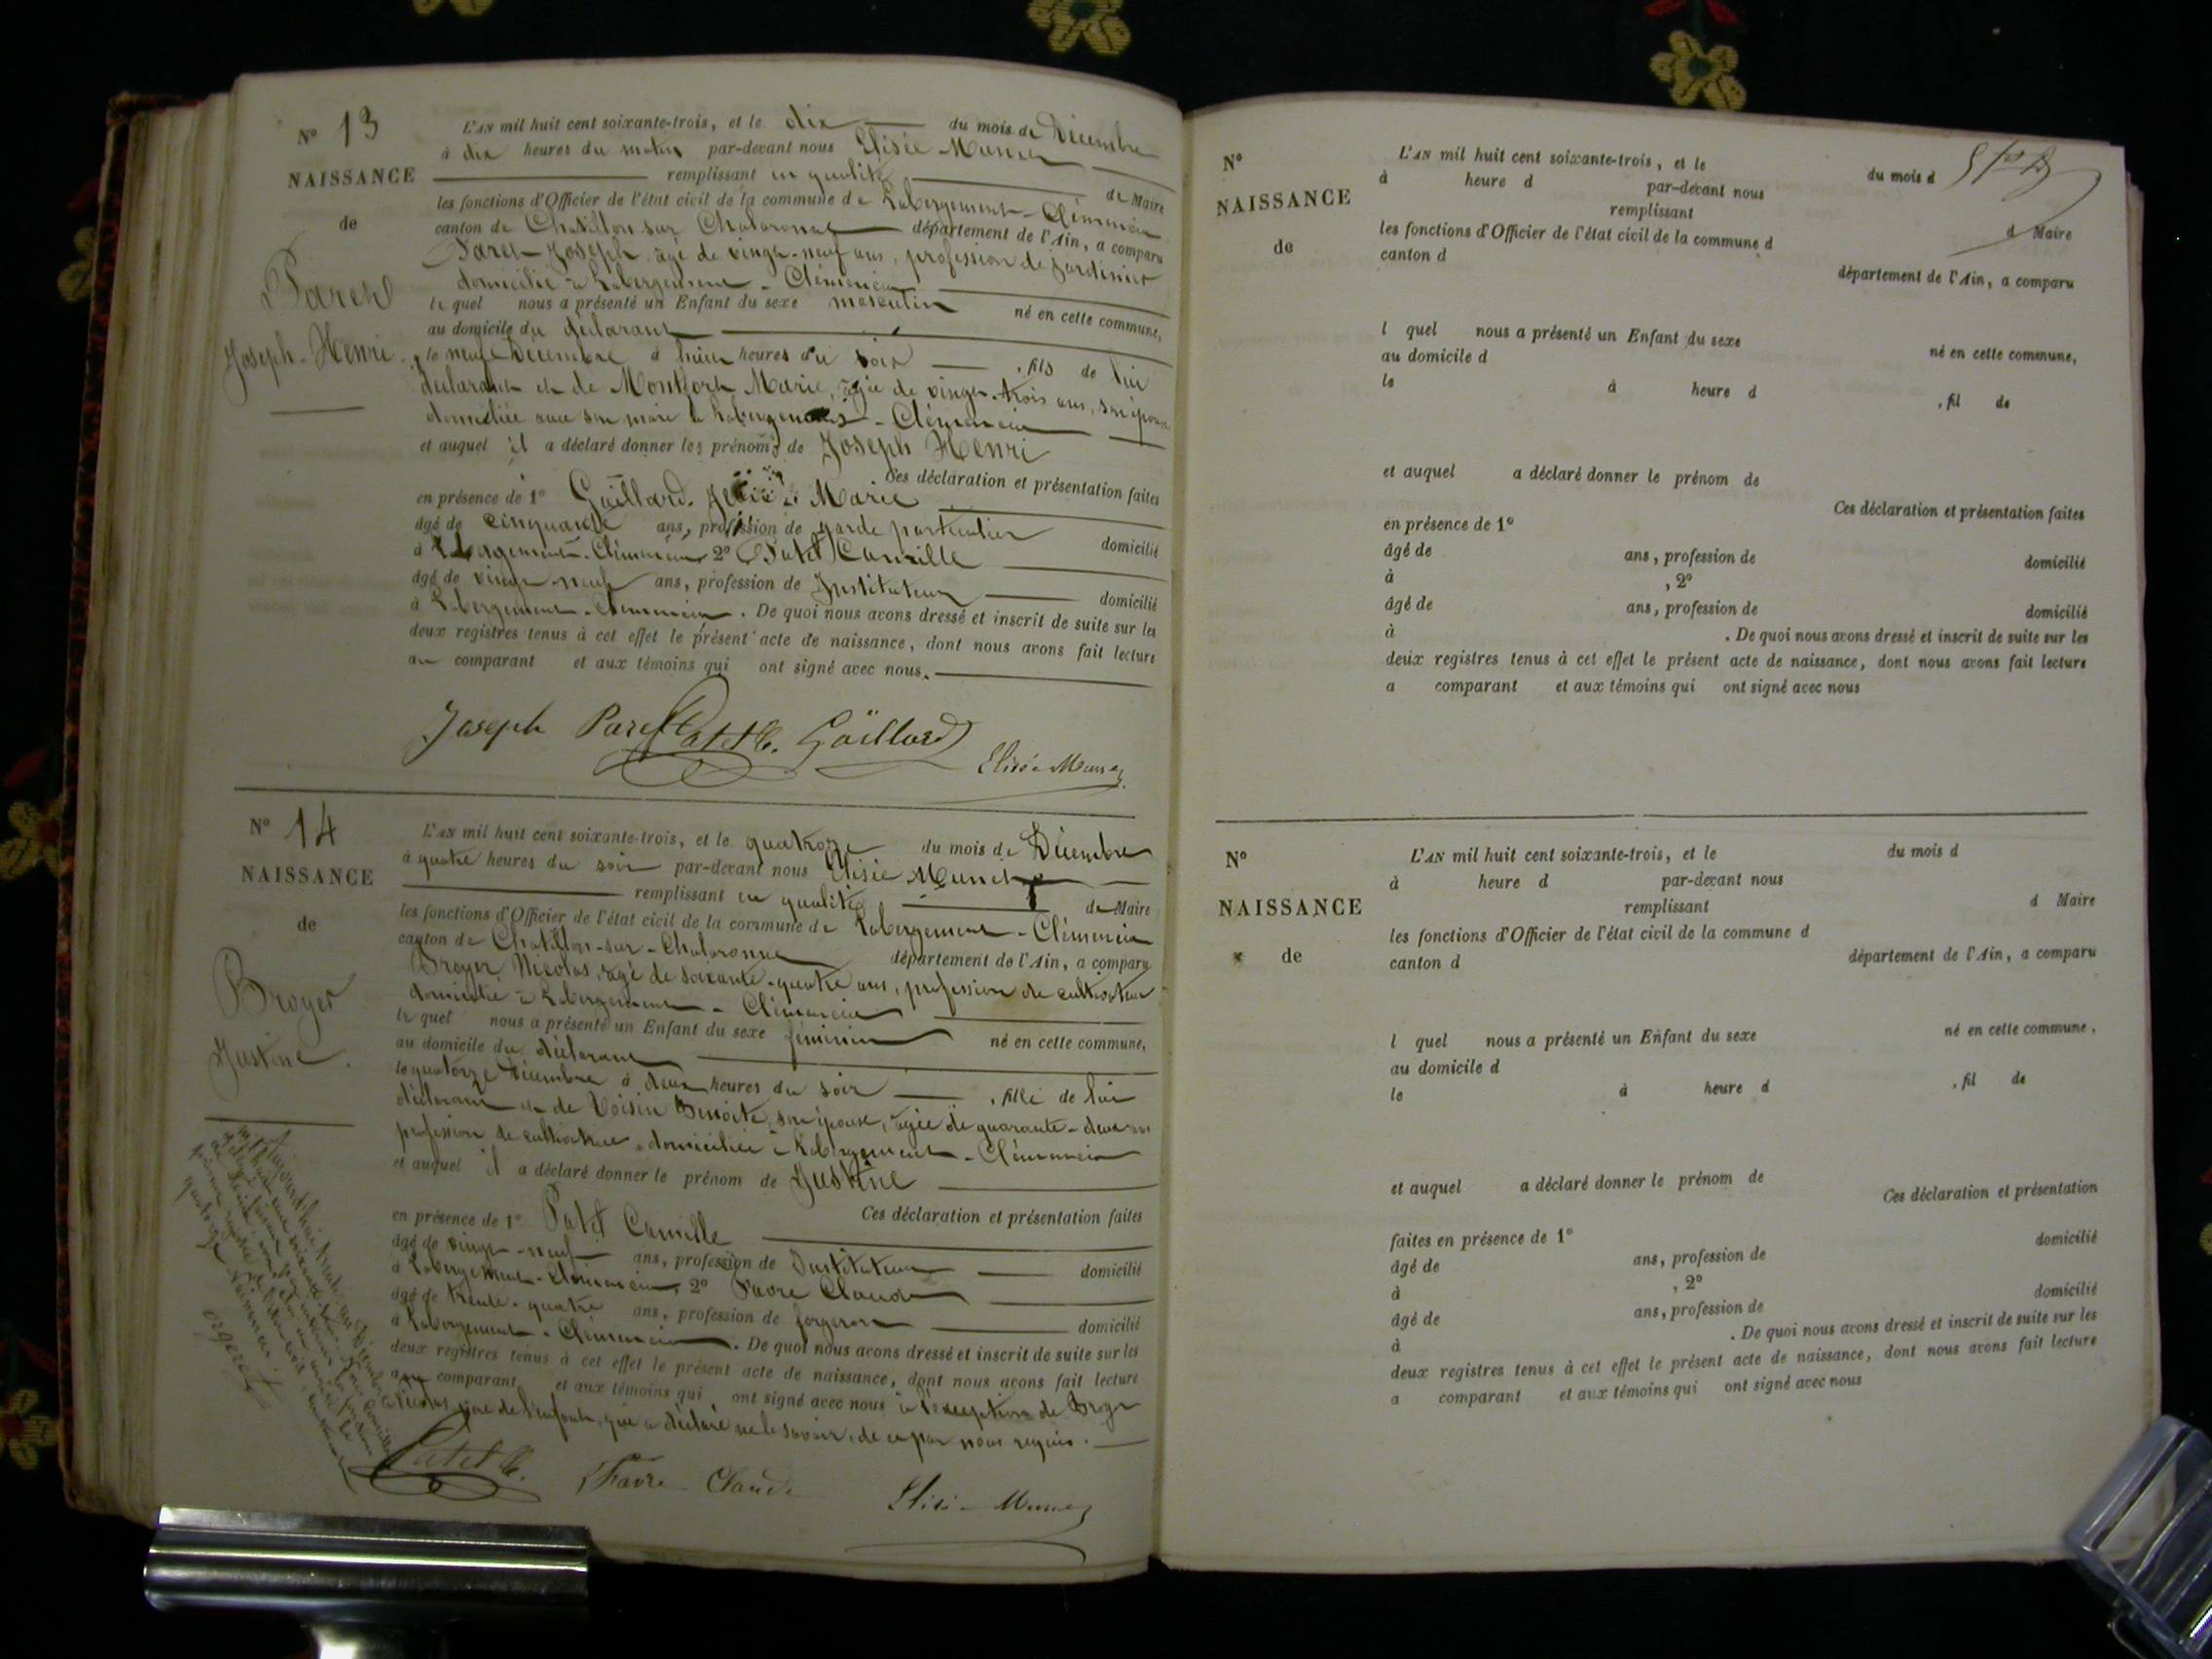 N° 13
NAISSANCE
de
Paret
Joseph-Henri.
L'AN mil huit cent soixante-trois, et le dix du mois de Décembre
à dix heures du matin par-devant nous Elisée Munet
remplissant en qualité de Maire
les fonctions d'Officier de l'état civil de la commune de Labergement-Clémencia
canton de Chatillon sur Chalaronne département de l'Ain, a comparu
Paret Joseph, âgé de vingt-neuf ans, profession de Jardinier
domicilié à Labergement-Clémencia
le quel nous a présenté un Enfant du sexe masculin né en cette commune,
au domicile du déclarant
le neuf Décembre à heures du soir, fils de lui
déclarant et de Montfort Marie, âgée de vingt-trois ans, son épouse
domiciliée avec son mari à Labergement-Clémencia
et auquel il a déclaré donner les prénoms de Joseph Henri
Ces déclaration et présentation faites
en présence de 1° Gaillard Marie
âgé de cinquante ans, profession de garde particulier domicilié
à Labergement-Clémencia 2° Patet Camille
âgé de vingt-neuf ans, profession de Instituteur domicilié
à Labergement-Clémencia. De quoi nous avons dressé et inscrit de suite sur les
deux registres tenus à cet effet le présent acte de naissance, dont nous avons fait lecture
au comparant et aux témoins qui ont signé avec nous.
Joseph Paret Patet C. Gaillard
Elisée Munet
N° 14
NAISSANCE
de
Broyer
Justine.
L'AN mil huit cent soixante-trois, et le quatorze du mois de Décembre
à quatre heures du soir par-devant nous Elisée Munet
remplissant en qualité de Maire
les fonctions d'Officier de l'état civil de la commune de Labergement-Clémencia
canton de Chatillon-sur-Chalaronne département de l'Ain, a comparu
Broyer Nicolas, âgé de soixante-quatre ans, profession de cultivateur
domicilié à Labergement-Clémencia
le quel nous a présenté un Enfant du sexe féminin né en cette commune,
au domicile du déclarant
le quatorze Décembre à deux heures du soir, fille de lui
déclarant et de Voisin Benoite, son épouse, âgée de quarante-deux ans
profession de cultivatrice domiciliée à Labergement-Clémencia
et auquel il a déclaré donner le prénom de Justine
Ces déclaration et présentation faites
en présence de 1° Patet Camille
âgé de vingt-neuf ans, profession de Instituteur domicilié
à Labergement-Clémencia, 2° Favre Claude
âgé de trente-quatre ans, profession de forgeron domicilié
à Labergement-Clémencia. De quoi nous avons dressé et inscrit de suite sur les
deux registres tenus à cet effet le présent acte de naissance, dont nous avons fait lecture
au comparant et aux témoins qui ont signé avec nous à l'exception de Broyer
Nicolas, père de l'enfant, qui a déclaré ne le savoir, de ce par nous requis.
Patet C. Favre Claude Elisée Munet
N°
NAISSANCE
de
L'AN mil huit cent soixante-trois, et le du mois d
à heure d par-devant nous
remplissant d Maire
les fonctions d'Officier de l'état civil de la commune d
canton d département de l'Ain, a comparu
l quel nous a présenté un Enfant du sexe né en cette commune,
au domicile d
le à heure d , fil de
et auquel a déclaré donner le prénom de
Ces déclaration et présentation faites
en présence de 1°
âgé de ans, profession de domicilié
à , 2°
âgé de ans, profession de domicilié
à . De quoi nous avons dressé et inscrit de suite sur les
deux registres tenus à cet effet le présent acte de naissance, dont nous avons fait lecture
a comparant et aux témoins qui ont signé avec nous
N°
NAISSANCE
de
L'AN mil huit cent soixante-trois, et le du mois d
à heure d par-devant nous
remplissant d Maire
les fonctions d'Officier de l'état civil de la commune d
canton d département de l'Ain, a comparu
l quel nous a présenté un Enfant du sexe né en cette commune,
au domicile d
le à heure d , fil de
et auquel a déclaré donner le prénom de
Ces déclaration et présentation
faites en présence de 1° domicilié
âgé de ans, profession de
à , 2° domicilié
âgé de ans, profession de
à . De quoi nous avons dressé et inscrit de suite sur les
deux registres tenus à cet effet le présent acte de naissance, dont nous avons fait lecture
a comparant et aux témoins qui ont signé avec nous